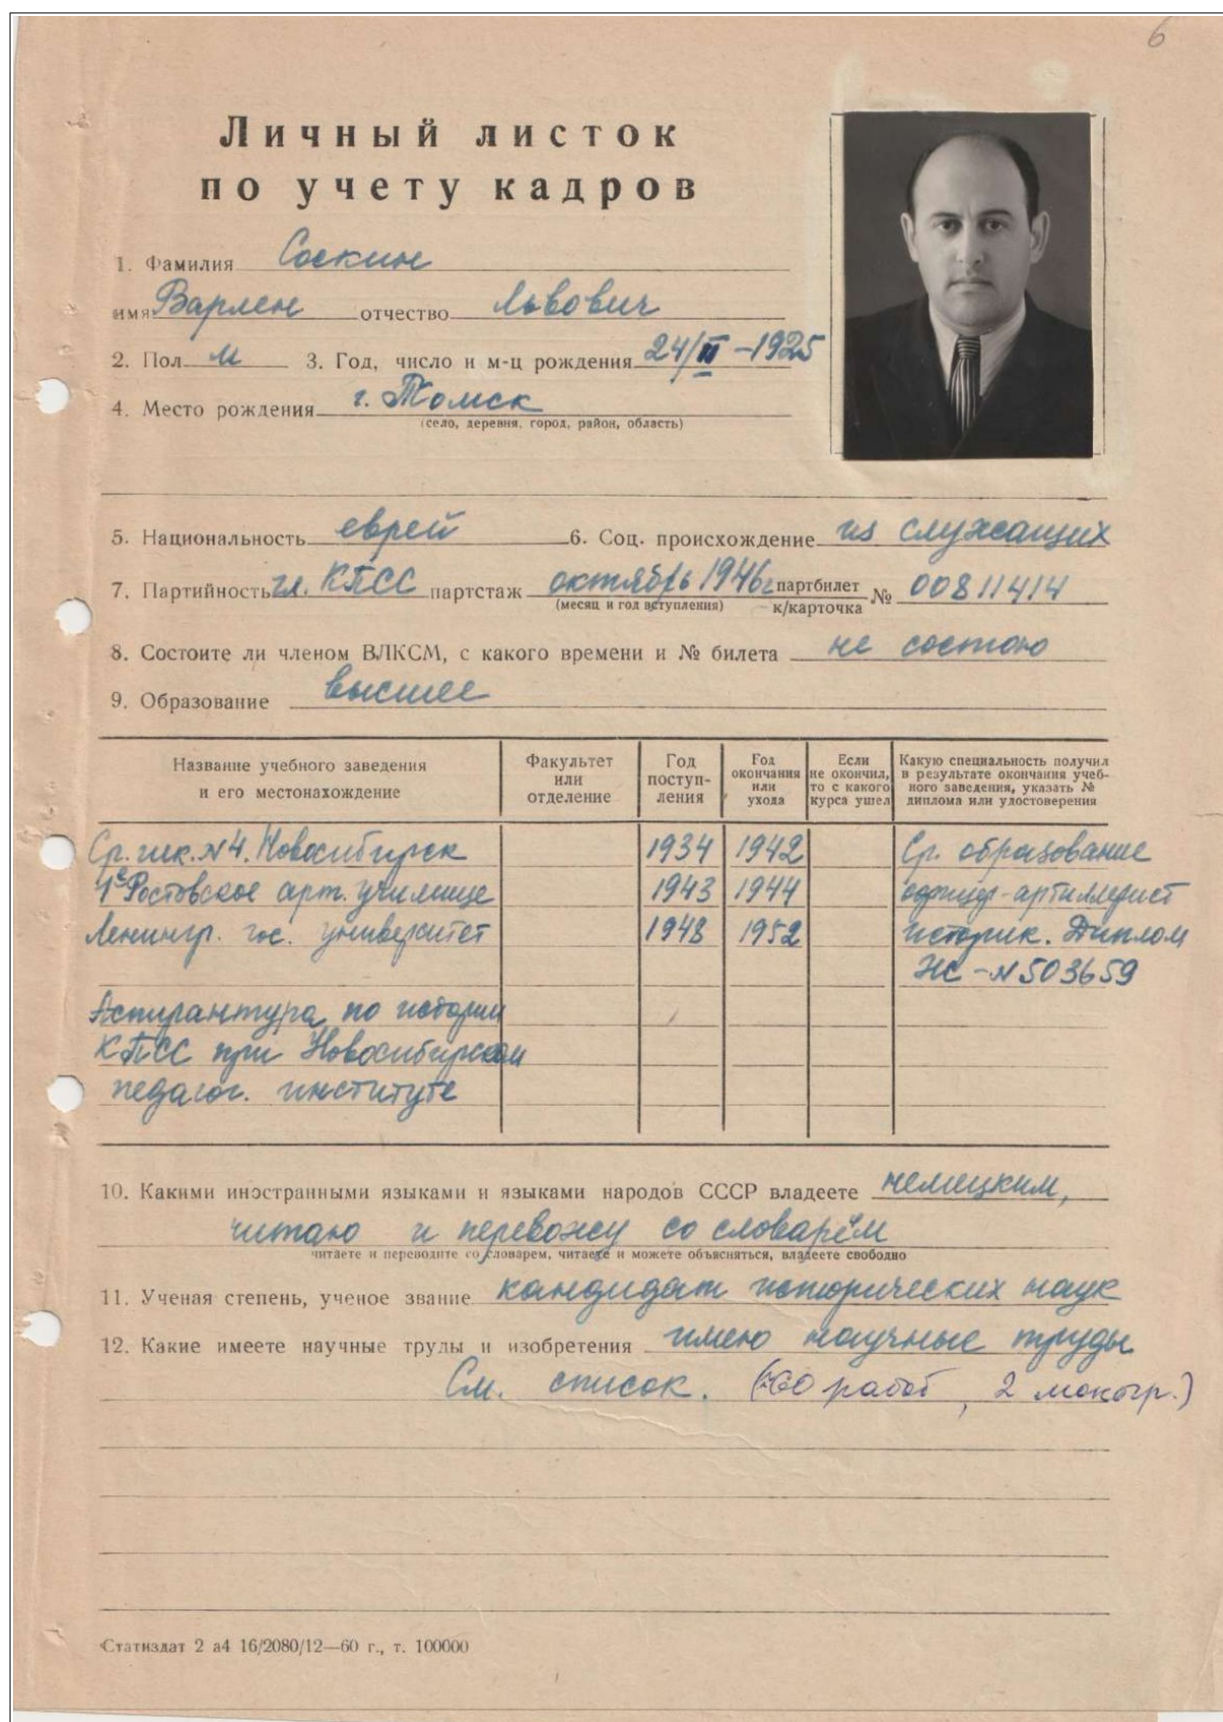 6
Личный листок
по учету кадров
1. Фамилия Соскин
имя Варлен отчество Львович
2. Пол М 3. Год, число и м-ц рождения 24/II-1925
4. Место рождения г. Томск
(село, деревня, город, район, область)
5. Национальность еврей 6. Соц. происхождение из служащих
7. Партийность чл. КПСС партстаж октябрь 1946г партбилет к/карточка № 00811414
(месяц и год вступления)
8. Состоите ли членом ВЛКСМ, с какого времени и № билета не состою
9. Образование высшее
Название учебного заведения и его местонахождение
Факультет или отделение
Год поступ-ления
Год окончания или ухода
Если не окончил, то с какого курса ушел
Какую специальность получил в результате окончания учеб-ного заведения, указать № диплома или удостоверения
Ср. шк. №4. Новосибирск 1934 1942 Ср. образование
1е Ростовское арт. училище 1943 1944 офицер-артиллерист
Ленингр. гос. университет 1948 1952 историк. Диплом
НС-№503659
Аспирантура по истории
КПСС при Новосибирском
педагог. институте
10. Какими иностранными языками и языками народов СССР владеете немецким,
читаю и перевожу со словарём
читаете и переводите со словарем, читаете и можете объясняться, владеете свободно
11. Ученая степень, ученое звание кандидат исторических наук
12. Какие имеете научные труды и изобретения имею научные труды
См. список. (60 работ, 2 моногр.)
Статиздат 2 а4 16/2080/12—60 г., т. 100000